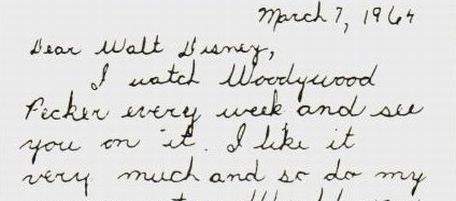 March 7, 1964
Dear Walt Disney,
I watch Woodywood
Pecker every week and see
you on it. I like it
very much and so do my